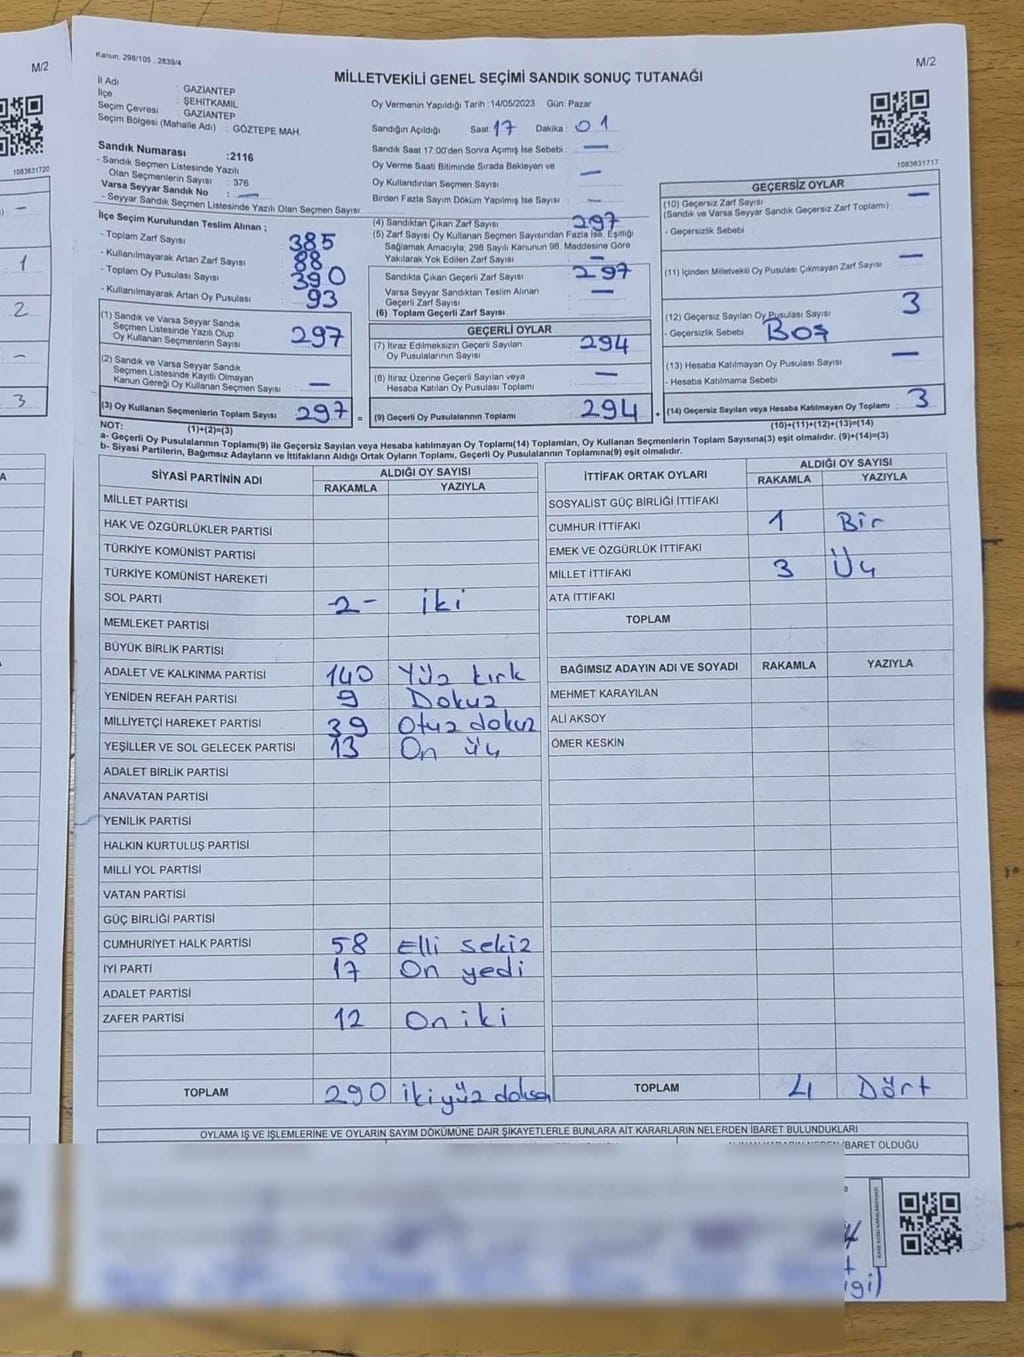 M/2
1083631720
1
2
-
3
Kanun: 298/105 . 2839/4
MİLLETVEKİLİ GENEL SEÇİMİ SANDIK SONUÇ TUTANAĞI
M/2
İl Adı : GAZİANTEP
İlçe : ŞEHİTKAMİL
Seçim Çevresi : GAZİANTEP
Seçim Bölgesi (Mahalle Adı) : GÖZTEPE MAH.
Sandık Numarası :2116
- Sandık Seçmen Listesinde Yazılı
Olan Seçmenlerin Sayısı : 376
Varsa Seyyar Sandık No : —
- Seyyar Sandık Seçmen Listesinde Yazılı Olan Seçmen Sayısı:
Oy Vermenin Yapıldığı Tarih :14/05/2023 Gün: Pazar
Sandığın Açıldığı Saat: 17 Dakika: 01
Sandık Saat 17:00'den Sonra Açılmış İse Sebebi : —
Oy Verme Saati Bitiminde Sırada Bekleyen ve
Oy Kullandırılan Seçmen Sayısı —
Birden Fazla Sayım Döküm Yapılmış İse Sayısı : —
1083631717
İlçe Seçim Kurulundan Teslim Alınan ;
- Toplam Zarf Sayısı 385
- Kullanılmayarak Artan Zarf Sayısı 88
- Toplam Oy Pusulası Sayısı 390
- Kullanılmayarak Artan Oy Pusulası 93
(1) Sandık ve Varsa Seyyar Sandık
Seçmen Listesinde Yazılı Olup
Oy Kullanan Seçmenlerin Sayısı 297
(2) Sandık ve Varsa Seyyar Sandık
Seçmen Listesinde Kayıtlı Olmayan
Kanun Gereği Oy Kullanan Seçmen Sayısı —
(3) Oy Kullanan Seçmenlerin Toplam Sayısı 297 =
(1)+(2)=(3)
(4) Sandıktan Çıkan Zarf Sayısı 297
(5) Zarf Sayısı Oy Kullanan Seçmen Sayısından Fazla İse, Eşitliği
Sağlamak Amacıyla, 298 Sayılı Kanunun 98. Maddesine Göre
Yakılarak Yok Edilen Zarf Sayısı —
Sandıkta Çıkan Geçerli Zarf Sayısı 297
Varsa Seyyar Sandıktan Teslim Alınan
Geçerli Zarf Sayısı —
(6) Toplam Geçerli Zarf Sayısı
GEÇERLİ OYLAR
(7) İtiraz Edilmeksizin Geçerli Sayılan
Oy Pusulalarının Sayısı 294
(8) İtiraz Üzerine Geçerli Sayılan veya
Hesaba Katılan Oy Pusulası Toplamı —
(9) Geçerli Oy Pusulalarının Toplamı 294 +
GEÇERSİZ OYLAR
(10) Geçersiz Zarf Sayısı —
(Sandık ve Varsa Seyyar Sandık Geçersiz Zarf Toplamı)
- Geçersizlik Sebebi
(11) İçinden Milletvekili Oy Pusulası Çıkmayan Zarf Sayısı —
(12) Geçersiz Sayılan Oy Pusulası Sayısı 3
- Geçersizlik Sebebi : Boş
(13) Hesaba Katılmayan Oy Pusulası Sayısı —
- Hesaba Katılmama Sebebi
(14) Geçersiz Sayılan veya Hesaba Katılmayan Oy Toplamı 3
(10)+(11)+(12)+(13)=(14)
NOT:
a- Geçerli Oy Pusulalarının Toplamı(9) ile Geçersiz Sayılan veya Hesaba katılmayan Oy Toplamı(14) Toplamları, Oy Kullanan Seçmenlerin Toplam Sayısına(3) eşit olmalıdır. (9)+(14)=(3)
b- Siyasi Partilerin, Bağımsız Adayların ve İttifakların Aldığı Ortak Oyların Toplamı, Geçerli Oy Pusulalarının Toplamına(9) eşit olmalıdır.
SİYASİ PARTİNİN ADI ALDIĞI OY SAYISI
RAKAMLA YAZIYLA
MİLLET PARTİSİ
HAK VE ÖZGÜRLÜKLER PARTİSİ
TÜRKİYE KOMÜNİST PARTİSİ
TÜRKİYE KOMÜNİST HAREKETİ
SOL PARTİ -2- iki
MEMLEKET PARTİSİ
BÜYÜK BİRLİK PARTİSİ
ADALET VE KALKINMA PARTİSİ 140 Yüz kırk
YENİDEN REFAH PARTİSİ 9 Dokuz
MİLLİYETÇİ HAREKET PARTİSİ 39 Otuz dokuz
YEŞİLLER VE SOL GELECEK PARTİSİ 13 On üç
ADALET BİRLİK PARTİSİ
ANAVATAN PARTİSİ
YENİLİK PARTİSİ
HALKIN KURTULUŞ PARTİSİ
MİLLİ YOL PARTİSİ
VATAN PARTİSİ
GÜÇ BİRLİĞİ PARTİSİ
CUMHURİYET HALK PARTİSİ 58 Elli sekiz
İYİ PARTİ 17 On yedi
ADALET PARTİSİ
ZAFER PARTİSİ 12 On iki
TOPLAM 290 iki yüz doksan
İTTİFAK ORTAK OYLARI ALDIĞI OY SAYISI
RAKAMLA YAZIYLA
SOSYALİST GÜÇ BİRLİĞİ İTTİFAKI
CUMHUR İTTİFAKI 1 Bir
EMEK VE ÖZGÜRLÜK İTTİFAKI
MİLLET İTTİFAKI 3 Üç
ATA İTTİFAKI
TOPLAM
BAĞIMSIZ ADAYIN ADI VE SOYADI RAKAMLA YAZIYLA
MEHMET KARAYILAN
ALİ AKSOY
ÖMER KESKİN
TOPLAM 4 Dört
OYLAMA İŞ VE İŞLEMLERİNE VE OYLARIN SAYIM DÖKÜMÜNE DAİR ŞİKAYETLERLE BUNLARA AİT KARARLARIN NELERDEN İBARET BULUNDUKLARI
İBARET OLDUĞU